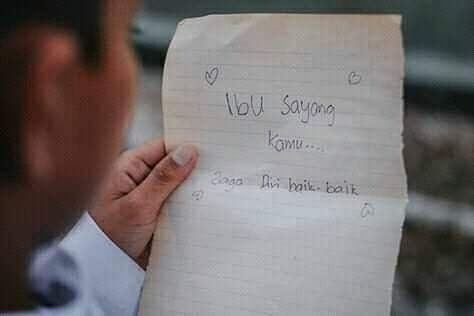 Ibu sayang
kamu....
Jaga Diri baik-baik